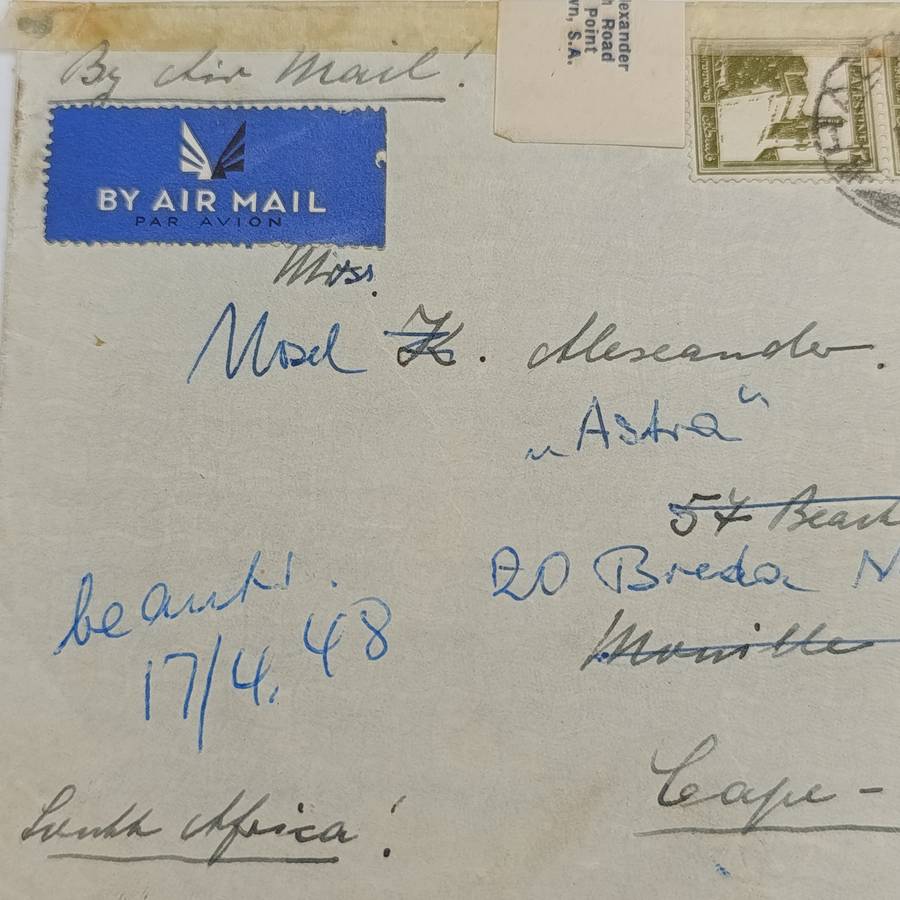 exander
Road
Point
wn, S.A.
By Air Mail!
PALESTINE
BY AIR MAIL
PAR AVION
Miss.
K. Alexander.
„Astra“
57 Beach
20 Breda
Cape-
17/4.48
South Africa!